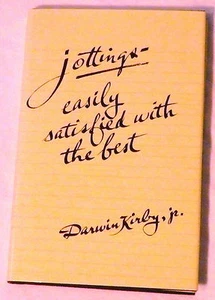 jottings-
easily
satisfied with
the best
Darwin Kirby, jr.